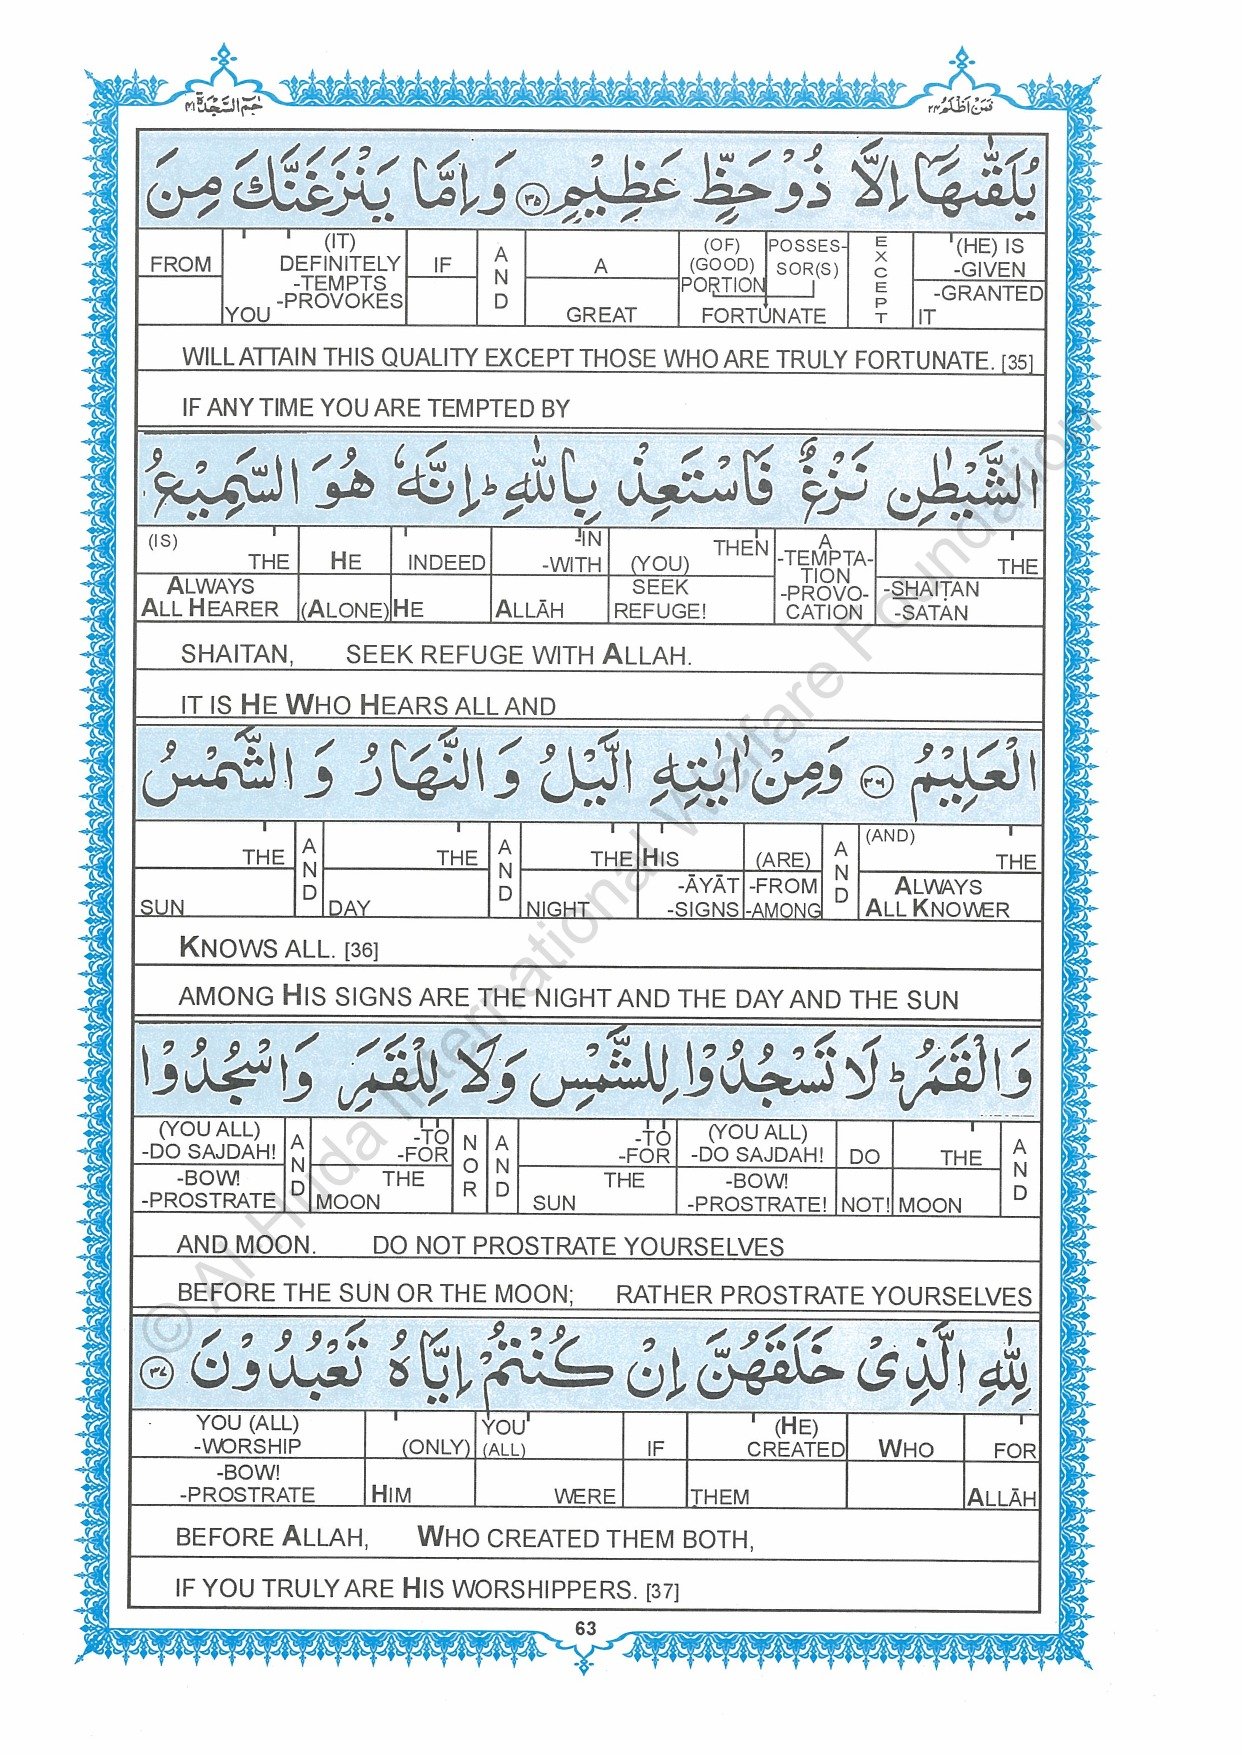 حٰمٓ السَّجْدَة ٤١
فَمَنْ اَظْلَمُ ٢٤
يُلَقّٰىهَاۤ اِلَّا ذُوْ حَظٍّ عَظِيْمٍ ٣٥ وَ اِمَّا يَنْزَغَنَّكَ مِنَ
FROM YOU (IT) DEFINITELY -TEMPTS -PROVOKES IF AND A GREAT (OF) (GOOD) PORTION POSSES- SOR(S) FORTUNATE EXCEPT (HE) IS -GIVEN -GRANTED IT
WILL ATTAIN THIS QUALITY EXCEPT THOSE WHO ARE TRULY FORTUNATE. [35]
IF ANY TIME YOU ARE TEMPTED BY
الشَّيْطٰنِ نَزْغٌ فَاسْتَعِذْ بِاللّٰهِ ؕ اِنَّهٗ هُوَ السَّمِيْعُ
(IS) THE ALWAYS ALL HEARER HE (ALONE) INDEED HE -IN -WITH ALLĀH THEN (YOU) SEEK REFUGE! A -TEMPTA- TION -PROVO- CATION THE -SHAIṬAN -SATAN
SHAITAN, SEEK REFUGE WITH ALLAH.
IT IS HE WHO HEARS ALL AND
الْعَلِيْمُ ٣٦ وَ مِنْ اٰيٰتِهِ الَّيْلُ وَ النَّهَارُ وَ الشَّمْسُ
THE SUN AND THE DAY AND THE NIGHT HIS -ĀYĀT -SIGNS (ARE) -FROM -AMONG AND (AND) THE ALWAYS ALL KNOWER
KNOWS ALL. [36]
AMONG HIS SIGNS ARE THE NIGHT AND THE DAY AND THE SUN
وَ الْقَمَرُ ؕ لَا تَسْجُدُوْا لِلشَّمْسِ وَ لَا لِلْقَمَرِ وَ اسْجُدُوْا
(YOU ALL) -DO SAJDAH! -BOW! -PROSTRATE AND -TO -FOR THE MOON NOR AND -TO -FOR THE SUN (YOU ALL) -DO SAJDAH! -BOW! -PROSTRATE! DO NOT! THE MOON AND
AND MOON. DO NOT PROSTRATE YOURSELVES
BEFORE THE SUN OR THE MOON; RATHER PROSTRATE YOURSELVES
لِلّٰهِ الَّذِيْ خَلَقَهُنَّ اِنْ كُنْتُمْ اِيَّاهُ تَعْبُدُوْنَ ٣٧
YOU (ALL) -WORSHIP -BOW! -PROSTRATE (ONLY) HIM YOU (ALL) WERE IF (HE) CREATED THEM WHO FOR ALLĀH
BEFORE ALLAH, WHO CREATED THEM BOTH,
IF YOU TRULY ARE HIS WORSHIPPERS. [37]
63
© Al-Huda International Welfare Foundation